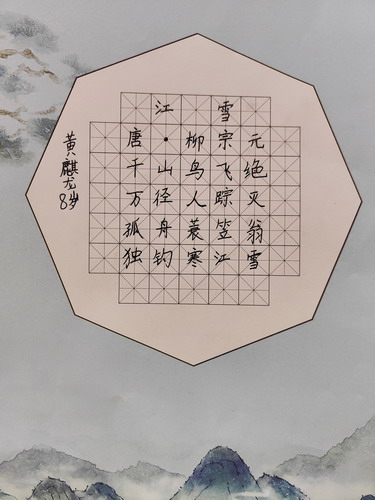 江雪
唐·柳宗元
千山鸟飞绝
万径人踪灭
孤舟蓑笠翁
独钓寒江雪
黄麒龙
8岁